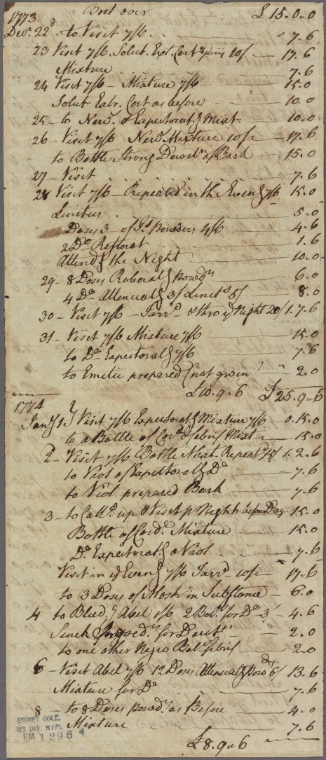 1773 Bot over £ 15.0.0
Decr. 22d to Visit 7/6 7.6
23 Visit 7/6 10/ 17.6
Mixture 7.6
24 Visit 7/6 – Mixture 7/6 15.0
Cort as before 10.0
25 to New & Expectorat.g Mixt 10.0
26 – Visit 7/6 New Mixture 10/ 17.6
to Bottle Strong Decoct. of Bark 15.0
27 – Visit 7.6
28 Visit 7/6 – Repeated in the Even.g 7/6 15.0
Linctus 5.0
Doses 3 of Powders 4/6 4.6
2 Do 1.6
Attend.g the Night 10.0
29 – 8 Doses Powdrs 6.0
4 Do Attenuat.g 3/ Linctus 5/ 8.0
30 – Visit 7/6 – & thro ye Night 20/ 1.7.6
31 – Visit 7/6 Mixture 7/6 15.0
to Do Expectorat.g 7/6 7.6
to Emetic prepared (not given) 2.0
£10.9.6 £25.9.6
1774
Jany 1st Visit 7/6 Expectorat.g Mixture 7/6 0.15.0
to a Bottle of Mixt. 15.0
2 – Visit 7/6 Bottle Mixt. Repeat 15/ 1.2.6
to Viol of Expectorat.g Do 7.6
to Viol prepared Bark 7.6
3 – to Call'd up & Visit pr Night before Day 15.0
Bottle of Cord. Mixture 15.0
Do Expectorat.g a Viol 7.6
Visit in ye Even.g 7/6 10/ 17.6
to 3 Doses of in Substance 6.0
4 to Bleed.g Abel 1/6 2 Bol. for Do 3/ 4.6
for 2.0
to one other Negro 2.0
6 – Visit Abel 7/6 12 Doses Attenuat.g Powdrs 6/ 13.6
Mixture for Do 7.6
8 to 8 Doses Powdrs as Before 4.0
Mixture 7.6
£8.9.6
EMMET COLL.
MS DIV. NYPL
EM 1296